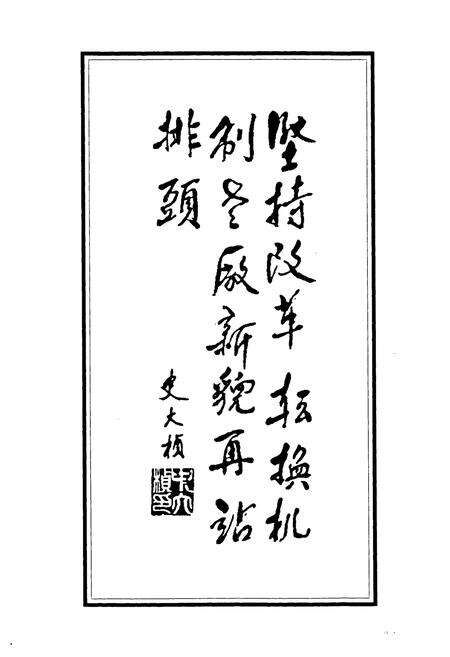 坚持改革转换机
制老厰新貌再站
排頭
史大桢
史大楨印